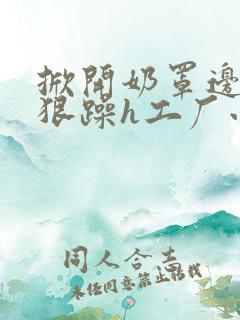 掀开奶罩邊
狠躁h工厂、
同人合志
未经同意禁止转载